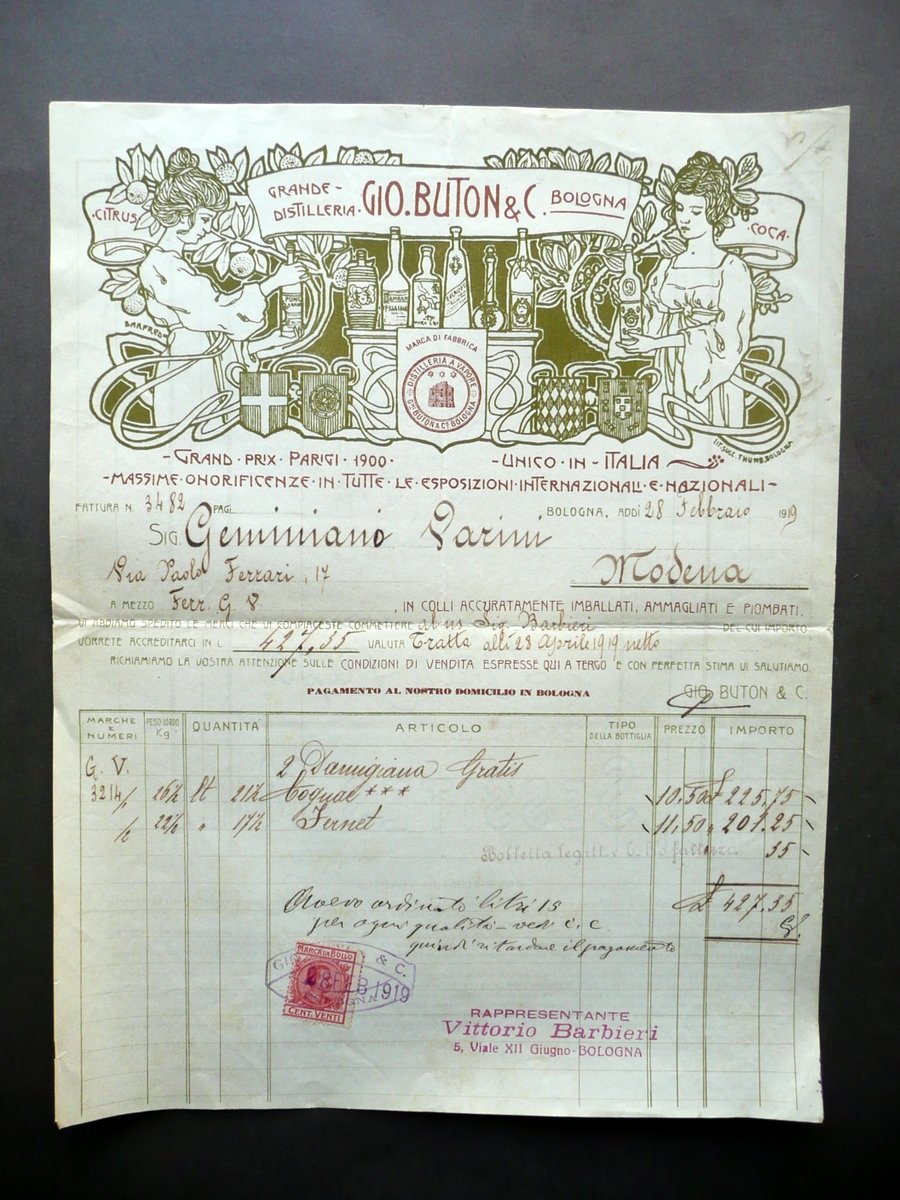 GRANDE-
DISTILLERIA · GIO. BUTON & C. BOLOGNA
· CITRUS ·
· COCA ·
BARFREDO
MARCA DI FABBRICA
DISTILLERIA A VAPORE
G. BUTON & C. BOLOGNA
LIT. SUCC. THUMB. BOLOGNA
- GRAND · PRIX · PARIGI · 1900 · - UNICO · IN - ITALIA
- MASSIME · ONORIFICENZE · IN · TUTTE · LE · ESPOSIZIONI · INTERNAZIONALI · E · NAZIONALI -
FATTURA N. 3482 PAG. BOLOGNA, ADDÌ 28 Febbraio 1919
SIG. Geminiano Parini
Via Paolo Ferrari, 17 Modena
A MEZZO Ferr. G. V , IN COLLI ACCURATAMENTE IMBALLATI, AMMAGLIATI E PIOMBATI,
VI ABBIAMO SPEDITO LE MERCI CHE VI COMPIACESTE COMMETTERE al ns. Sig. Barbieri DEL CUI IMPORTO
VORRETE ACCREDITARCI IN L. 427,35 VALUTA Tratta alli 28 Aprile 1919 netto
RICHIAMIAMO LA VOSTRA ATTENZIONE SULLE CONDIZIONI DI VENDITA ESPRESSE QUI A TERGO E CON PERFETTA STIMA VI SALUTIAMO.
PAGAMENTO AL NOSTRO DOMICILIO IN BOLOGNA
GIO. BUTON & C.
MARCHE E NUMERI PESO LORDO Kg QUANTITA' ARTICOLO TIPO DELLA BOTTIGLIA PREZZO IMPORTO
G. V. 2 Damigiana Gratis
3214/ 26½ lt 21½ Cognac *** 10,50 £ 225,75
/ 22½ " 17½ Fernet 11,50 " 201.25
Bolletta legitt. e bollo fattura 35
£ 427,35
Avevo ordinato litri 15
per ogni qualità - vedi c.c.
quindi ritardare il pagamento
MARCA DA BOLLO
CENT. VENTI
GIO. & C.
28 FEB 1919
RAPPRESENTANTE
Vittorio Barbieri
5, Viale XII Giugno - BOLOGNA